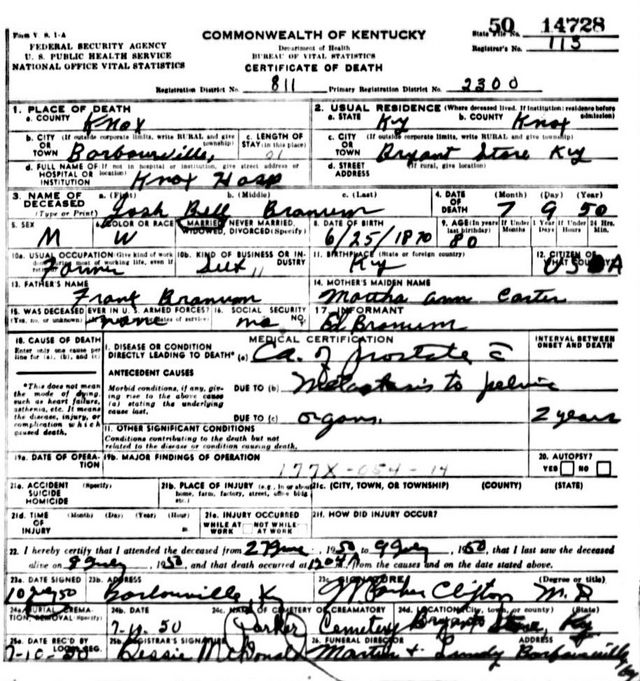 50 14728
Form V. S. 1-A
COMMONWEALTH OF KENTUCKY
State File No.
FEDERAL SECURITY AGENCY
Department of Health
Registrar's No. 115
U. S. PUBLIC HEALTH SERVICE
BUREAU OF VITAL STATISTICS
NATIONAL OFFICE VITAL STATISTICS
CERTIFICATE OF DEATH
Registration District No. 811 Primary Registration District No. 2300
1. PLACE OF DEATH
a. COUNTY Knox
2. USUAL RESIDENCE (Where deceased lived. If institution: residence before admission)
a. STATE Ky b. COUNTY Knox
b. CITY (If outside corporate limits, write RURAL and give township) OR TOWN Barbourville,
c. LENGTH OF STAY (in this place)
c. CITY (If outside corporate limits, write RURAL and give township) OR TOWN Bryant Store Ky
d. FULL NAME OF (If not in hospital or institution, give street address or location) HOSPITAL OR INSTITUTION Knox Hosp
d. STREET ADDRESS (If rural, give location)
3. NAME OF DECEASED (Type or Print)
a. (First) b. (Middle) c. (Last)
Josh Bell Branum
4. DATE OF DEATH (Month) (Day) (Year)
7 9 50
5. SEX M
6. COLOR OR RACE W
7. MARRIED, NEVER MARRIED, WIDOWED, DIVORCED (Specify)
8. DATE OF BIRTH 6/25/1870
9. AGE (In years last birthday) 80
If Under 1 Year If Under 24 Hrs.
10a. USUAL OCCUPATION (Give kind of work done during most of working life, even if retired) Farmer
10b. KIND OF BUSINESS OR INDUSTRY Self
11. BIRTHPLACE (State or foreign country) Ky
12. CITIZEN OF WHAT COUNTRY? USA
13. FATHER'S NAME
Frank Branum
14. MOTHER'S MAIDEN NAME
Martha Ann Carter
15. WAS DECEASED EVER IN U.S. ARMED FORCES? (Yes, no, or unknown) none
16. SOCIAL SECURITY NO. no
17. INFORMANT
Ed Branum
18. CAUSE OF DEATH
Enter only one cause per line for (a), (b), and (c)
MEDICAL CERTIFICATION
INTERVAL BETWEEN ONSET AND DEATH
I. DISEASE OR CONDITION DIRECTLY LEADING TO DEATH* (a) Ca. of prostate c̄
*This does not mean the mode of dying, such as heart failure, asthenia, etc. It means the disease, injury, or complication which caused death.
ANTECEDENT CAUSES
Morbid conditions, if any, giving rise to the above cause (a) stating the underlying cause last.
DUE TO (b) Metastasis to pelvic
DUE TO (c) organs. 2 years
II. OTHER SIGNIFICANT CONDITIONS
Conditions contributing to the death but not related to the disease or condition causing death.
19a. DATE OF OPERATION
19b. MAJOR FINDINGS OF OPERATION
177X-054-14
20. AUTOPSY?
YES NO
21a. ACCIDENT SUICIDE HOMICIDE (Specify)
21b. PLACE OF INJURY (e.g., in or about home, farm, factory, street, office bldg etc.)
21c. (CITY, TOWN, OR TOWNSHIP) (COUNTY) (STATE)
21d. TIME OF INJURY (Month) (Day) (Year) (Hour)
21e. INJURY OCCURRED
WHILE AT WORK NOT WHILE AT WORK
21f. HOW DID INJURY OCCUR?
22. I hereby certify that I attended the deceased from 27 June, 1950 to 9 July, 1950, that I last saw the deceased
alive on 8 July, 1950, and that death occurred at from the causes and on the date stated above.
23a. DATE SIGNED 10 July 50
23b. ADDRESS Barbourville, Ky
23c. SIGNATURE Parker Clifton M.D. (Degree or title)
24a. BURIAL, CREMATION, REMOVAL (Specify)
24b. DATE 7-11-50
24c. NAME OF CEMETERY OR CREMATORY Parker Cemetery
24d. LOCATION (City, town, or county) (State) Bryant Store, Ky
25a. DATE REC'D BY LOCAL REG. 7-10-50
25b. REGISTRAR'S SIGNATURE Bessie McDonald
26. FUNERAL DIRECTOR ADDRESS
Martin & Lundy Barbourville Ky